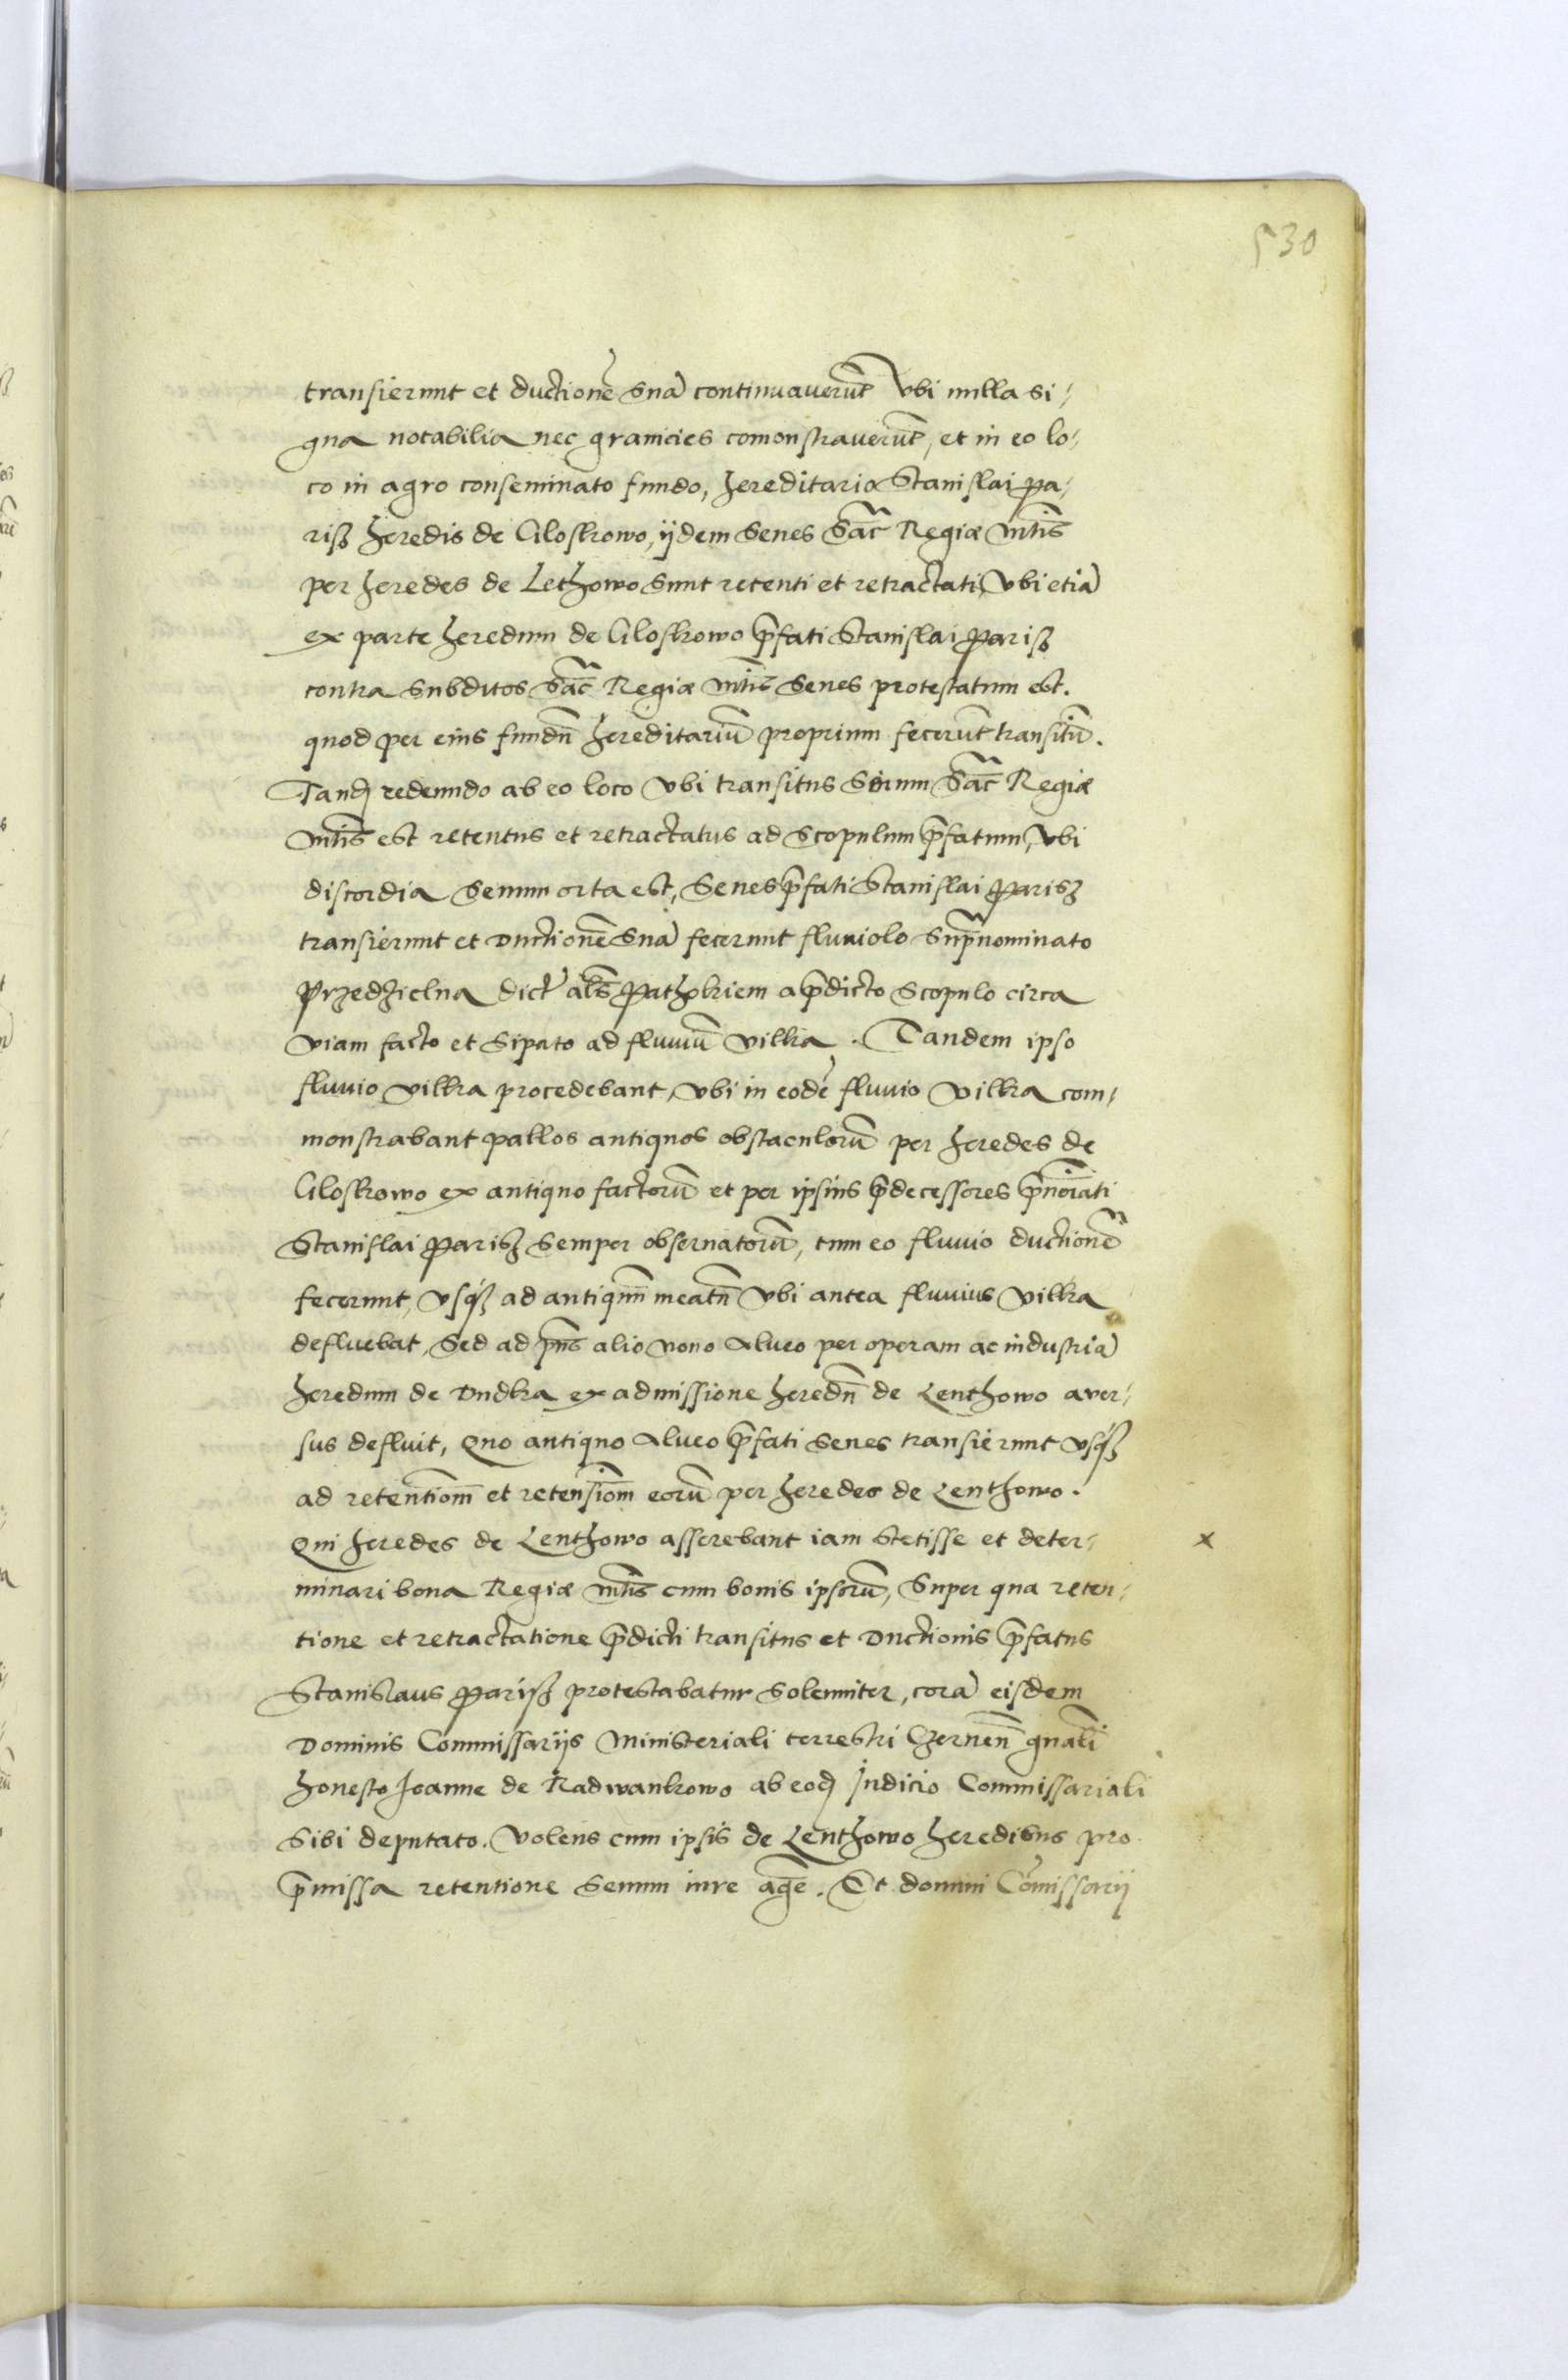 530
transierunt et ductionē suā continuaverūt Vbi nulla si-
gna notabilia nec granicies comonstraverūt, et in eo lo-
co in agro conseminato fundo, hereditario Stanislai Pa-
riß heredis de Gloskowo, ijdem Senes Sac̄ Regiæ mt̄is
per heredes de Lethowo sunt retenti et retractati, Vbi etiā
ex parte heredum de Gloskowo p̄fati Stanislai Parisz
contra subditos Sac̄ Regiæ mt̄is Senes protestatum est.
quod per eius fundū hereditariū proprium fecerūt transitū.
Tandꝫ redeundo ab eo loco Vbi transitus Senum Sac̄ Regiæ
mt̄is est retentus et retractatus ad Scopulum p̄fatum, Vbi
discordia Senum orta est, Senes p̄fati Stanislai Parisz
transierunt et Ductionē suā fecerunt fluviolo Supranominato
Przedzielna dict̄ al̄s Pathokiem a p̄dicto Scopulo circa
viam facto et Sipato ad fluviū Vilka. Tandem ipso
fluvio Vilka procedebant, Vbi in eodē fluvio Vilka com-
monstrabant pallos antiquos obstaculorū per heredes de
Gloskowo ex antiquo factorū et per ipsius p̄decessores p̄noīati
Stanislai Parisz semper observatorū, cum eo fluvio ductionē
fecerunt, vsqꝫ ad antiquū meatū Vbi antea fluvius Vilka
defluebat, Sed ad p̄ns alio novo Alveo per operam ac industriā
heredum de Dudka ex admissione heredū de Lenthowo aver-
sus defluit, Quo antiquo Alveo p̄fati Senes transierunt vsqꝫ
ad retentiōm et retensiōm eorū per heredes de Lenthowo.
Qui heredes de Lenthowo asserebant iam stetisse et deter- x
minari bona Regiæ mt̄is cum bonis ipsorū, Super qua reten-
tione et retractatione p̄dicti transitus et Ductionis p̄fatus
Stanislaus Parisz protestabatur Solenniter, corā eisdem
Dominis Commissarijs Ministeriali terrestri Czernēn gnāli
honesto Joanne de Radwankowo ab eodꝫ Judicio Commissariali
Sibi deputato. Volens cum ipsis de Lenthowo heredibus pro
p̄missa retentione Senum iure agē. Et domini Cōmissarij